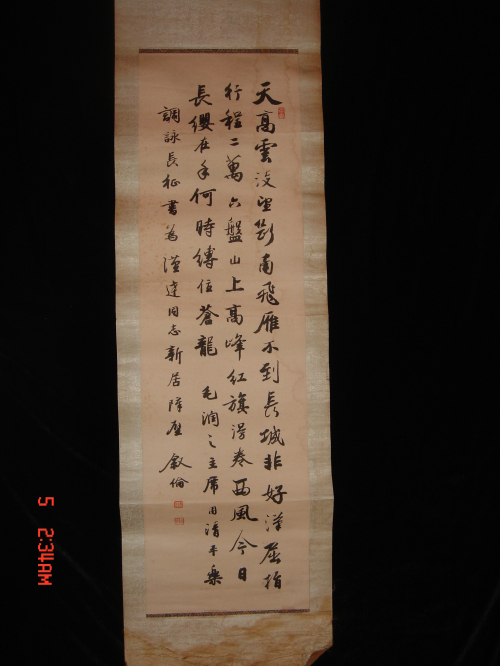 天高雲淡望斷南飛雁不到長城非好漢屈指
行程二萬六盤山上高峰紅旗漫卷西風今日
長纓在手何時縛住蒼龍 毛潤之主席用清平樂
調詠長征書為漢達同志新居障壁 叙倫
5 2:34AM